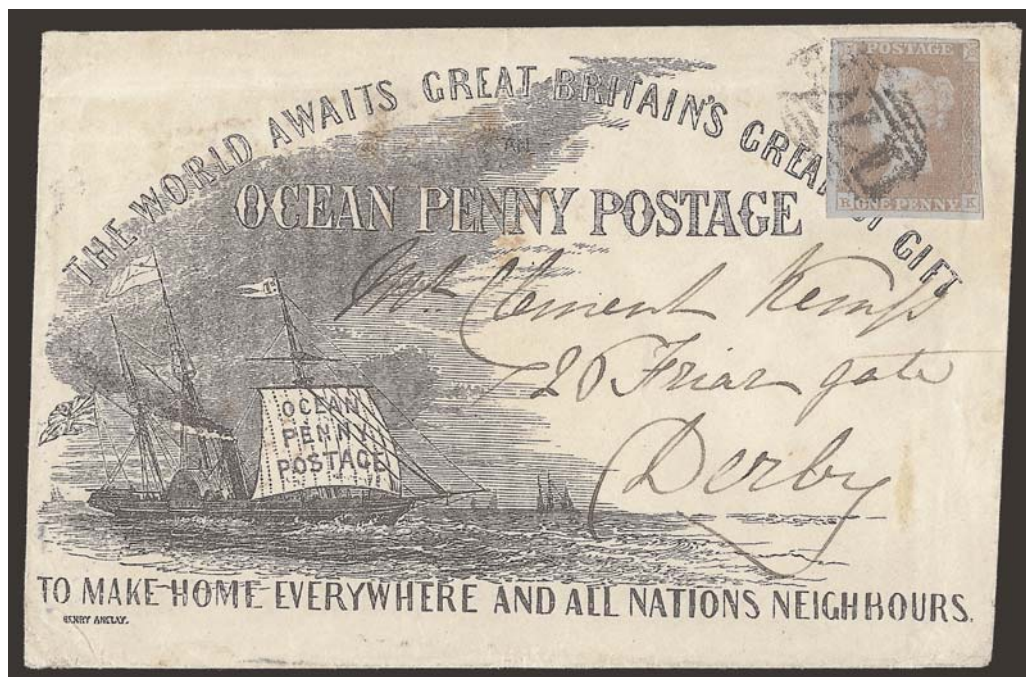 THE WORLD AWAITS GREAT BRITAIN'S GREA GIFT
AN
OCEAN PENNY POSTAGE
POSTAGE
R ONE PENNY K
Clement Kemp
Friar gate
Derby
1D
OCEAN
PENNY
POSTAGE
TO MAKE HOME EVERYWHERE AND ALL NATIONS NEIGHBOURS.
HENRY ANELAY.